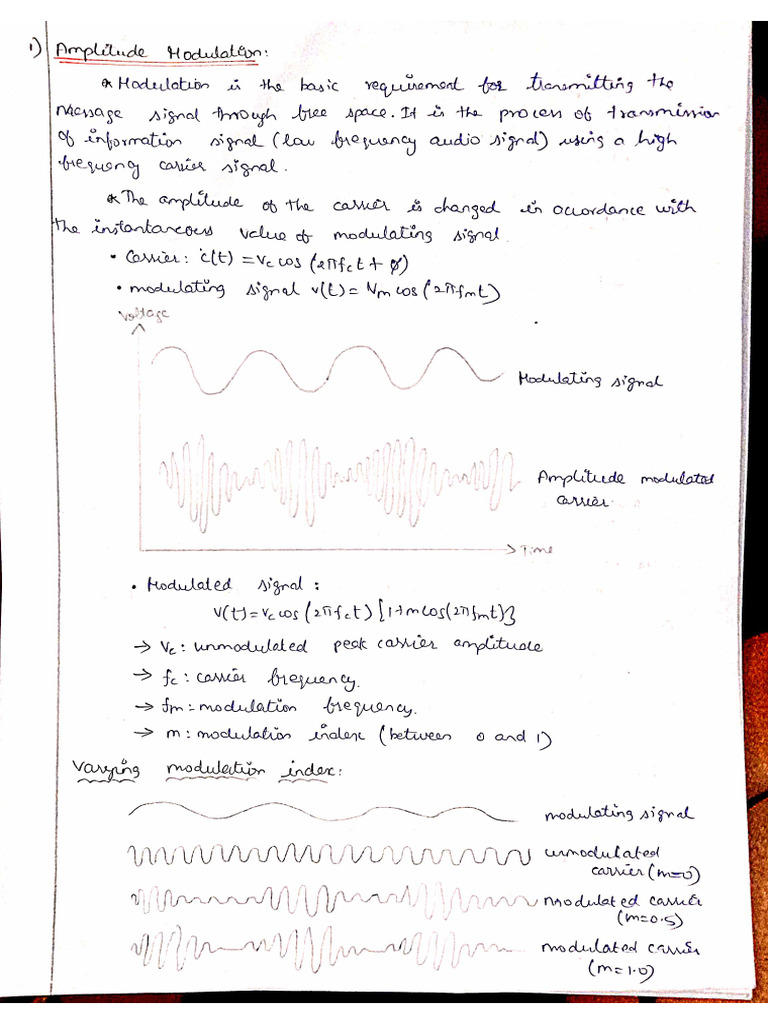 1) Amplitude Modulation:
* Modulation is the basic requirement for transmitting the
message signal through free space. It is the process of transmission
of information signal (low frequency audio signal) using a high
frequency carrier signal.
* The amplitude of the carrier is changed in accordance with
the instantaneous value of modulating signal.
• Carrier: c(t) = Vc cos (2πfct + ϕ)
• modulating signal v(t) = Vm cos (2πfmt)
Voltage
Modulating signal
Amplitude modulated
carrier
Time
• Modulated signal:
V(t) = Vc cos (2πfct) {1+m cos(2πfmt)}
→ Vc: unmodulated peak carrier amplitude
→ fc: carrier frequency.
→ fm: modulation frequency.
→ m: modulation index (between 0 and 1)
Varying modulation index:
modulating signal
unmodulated
carrier (m=0)
modulated carrier
(m=0.5)
modulated carrier
(m=1.0)